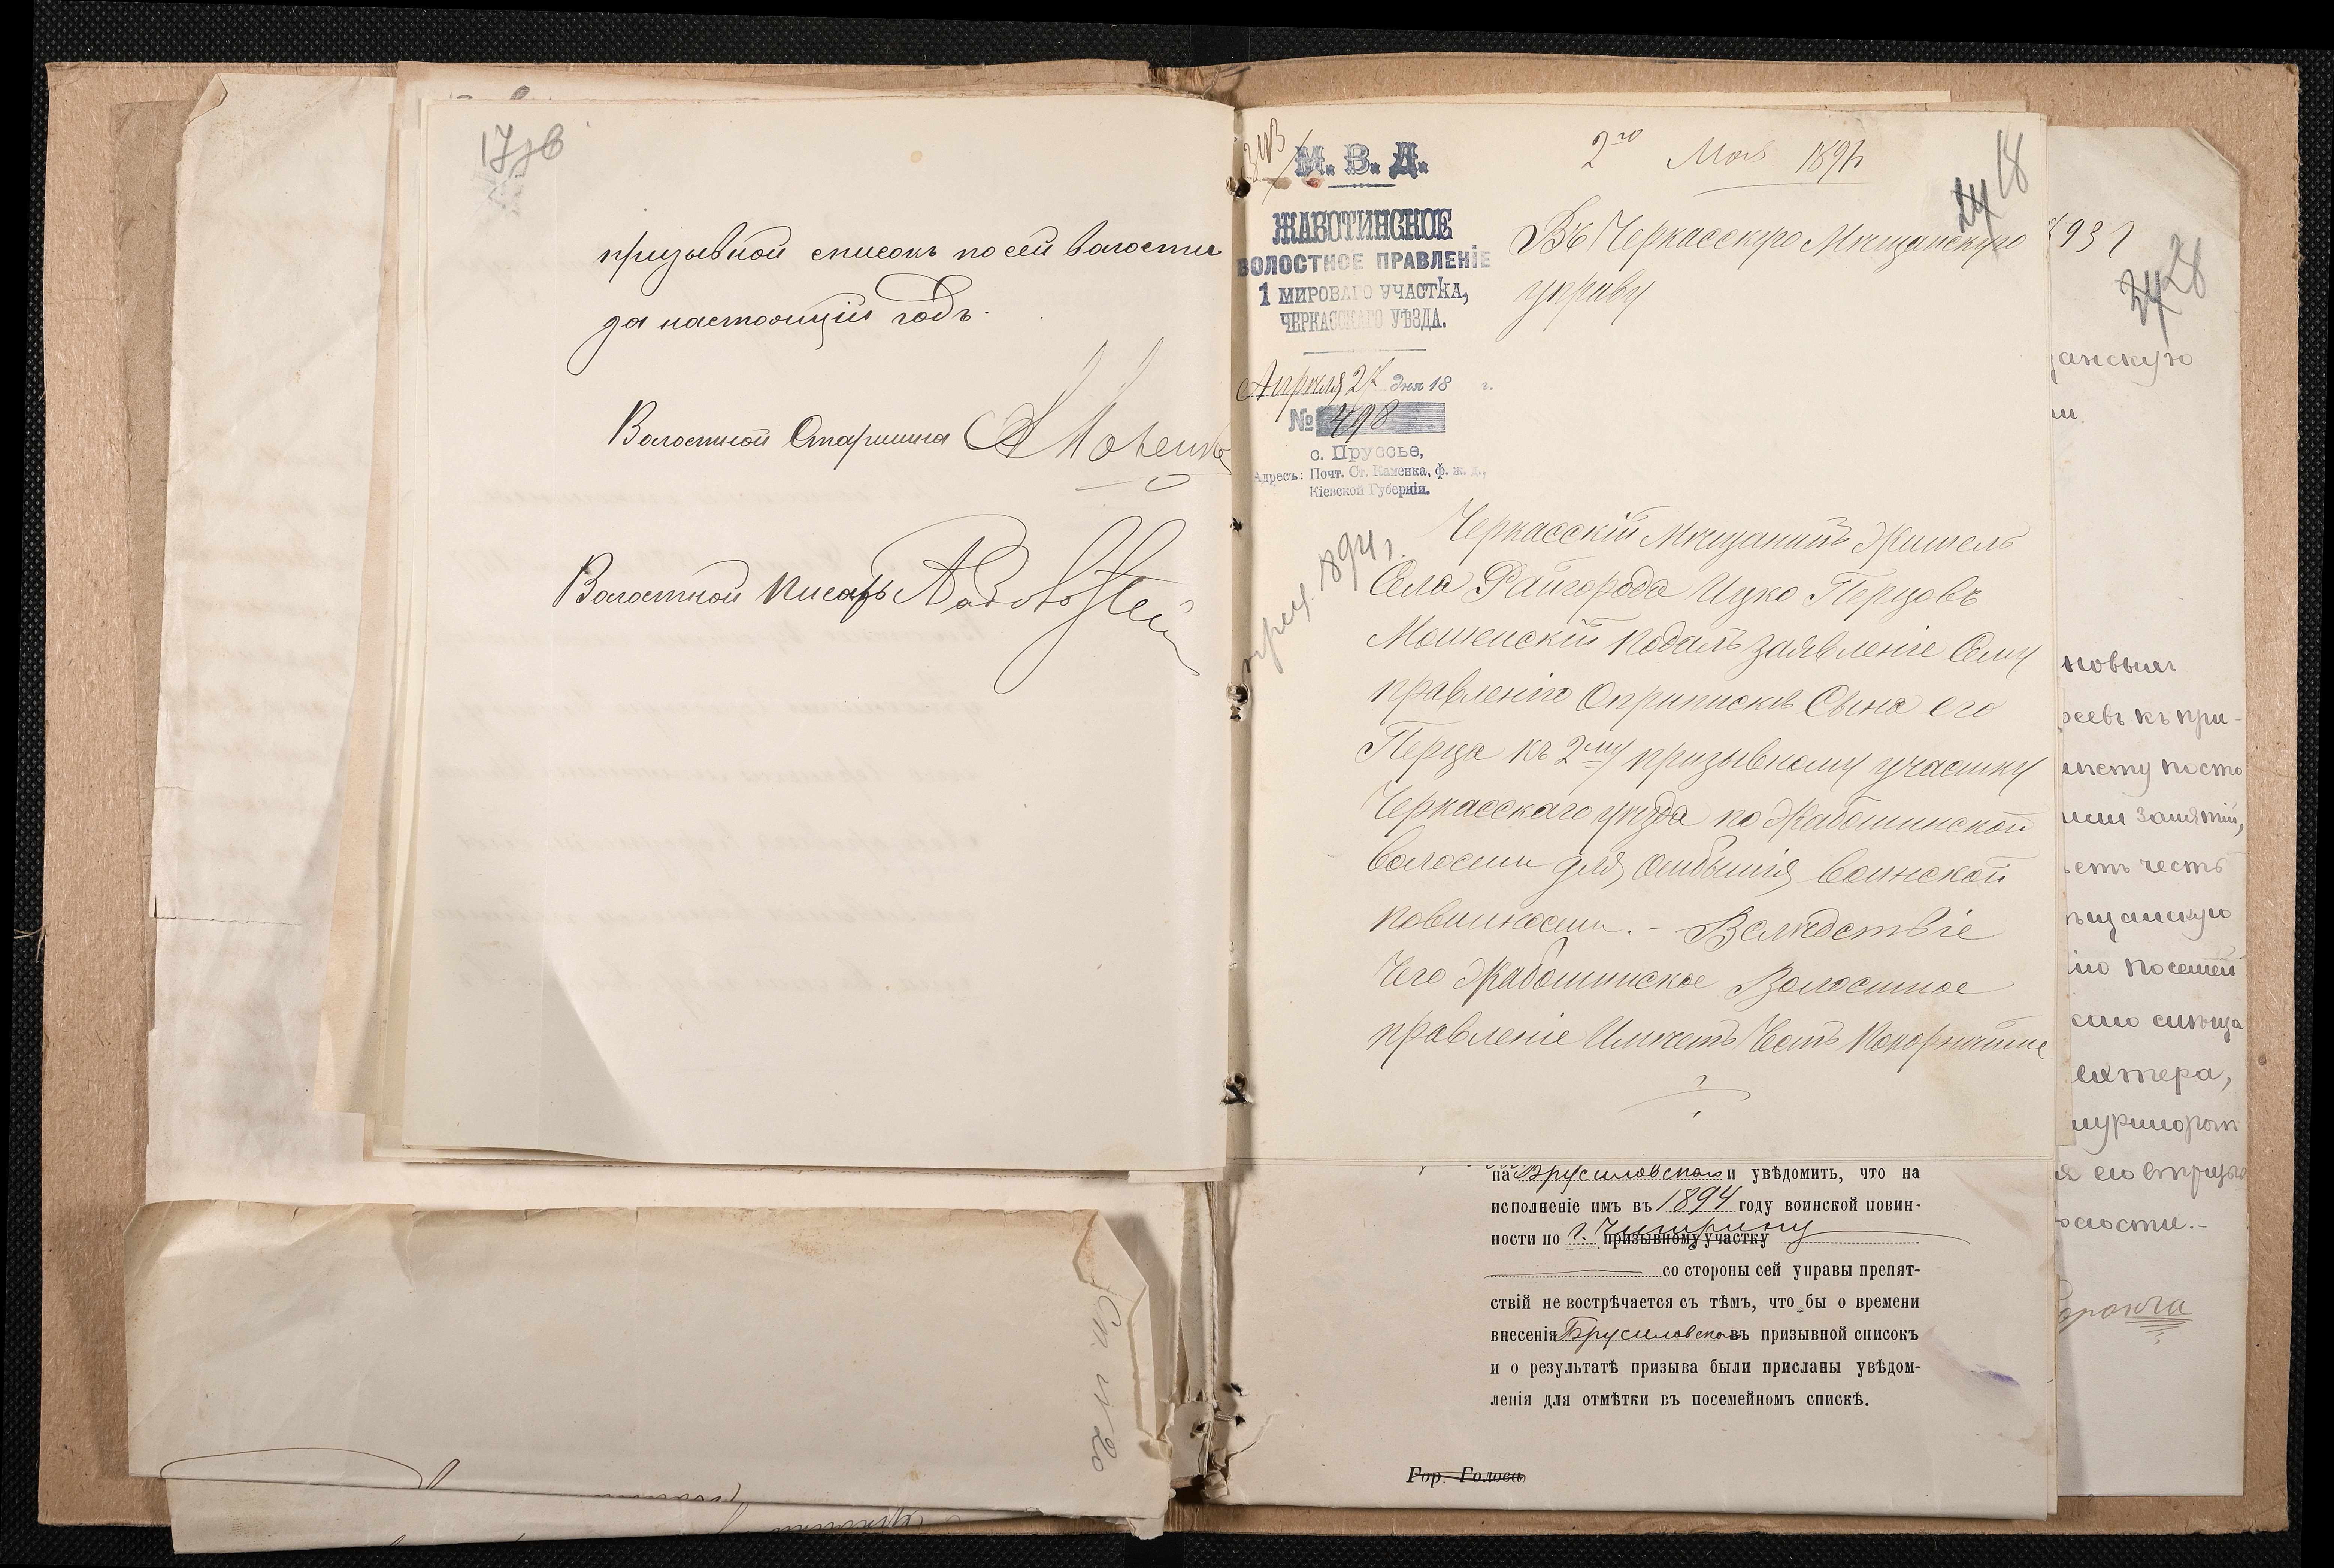 17 об
призывной списокъ по сей волости
за настоящій годъ.
Волостной Старшина
Волостной Писарь
М. В. Д.
ЖАБОТИНСКОЕ
ВОЛОСТНОЕ ПРАВЛЕНІЕ
1 МИРОВАГО УЧАСТКА,
ЧЕРКАССКАГО УѢЗДА.
Апрѣля 27 дня 18 г.
№ 498
с. Пруссье,
Адресъ: Почт. Ст. Каменка, ф. ж. д.,
Кіевской Губерніи.
2го Мая 1894
24 18
Въ Черкасскую Мѣщанскую
управу
приз. 1894 г.
Черкасскій Мѣщанинъ Житель
Села Райгорода Ицко Перцовъ
Мошенскій подалъ заявленіе Сему
правленію Оприпискѣ Сына его
Перца къ 2му призывному участку
Черкасскаго уѣзда по Жаботинской
волости для отбытія воинской
повинности. - Вслѣдствіе
Чего Жаботинское Волостное
правленіе Имѣетъ Честь Покорнѣйше
на Брусиловскаго и увѣдомить, что на
исполненіе имъ въ 1894 году воинской повин-
ности по г. Чигирину призывному участку
со стороны сей управы препят-
ствій не вострѣчается съ тѣмъ, что бы о времени
внесенія Брусиловскаго въ призывной списокъ
и о результатѣ призыва были присланы увѣдом-
ленія для отмѣтки въ посемейномъ спискѣ.
Гор. Голова
931
24 28
данскую
новым
реевъ къ при-
мету посто
занятій,
етъ честь
щанскую
посемей
ектера,
волости.-